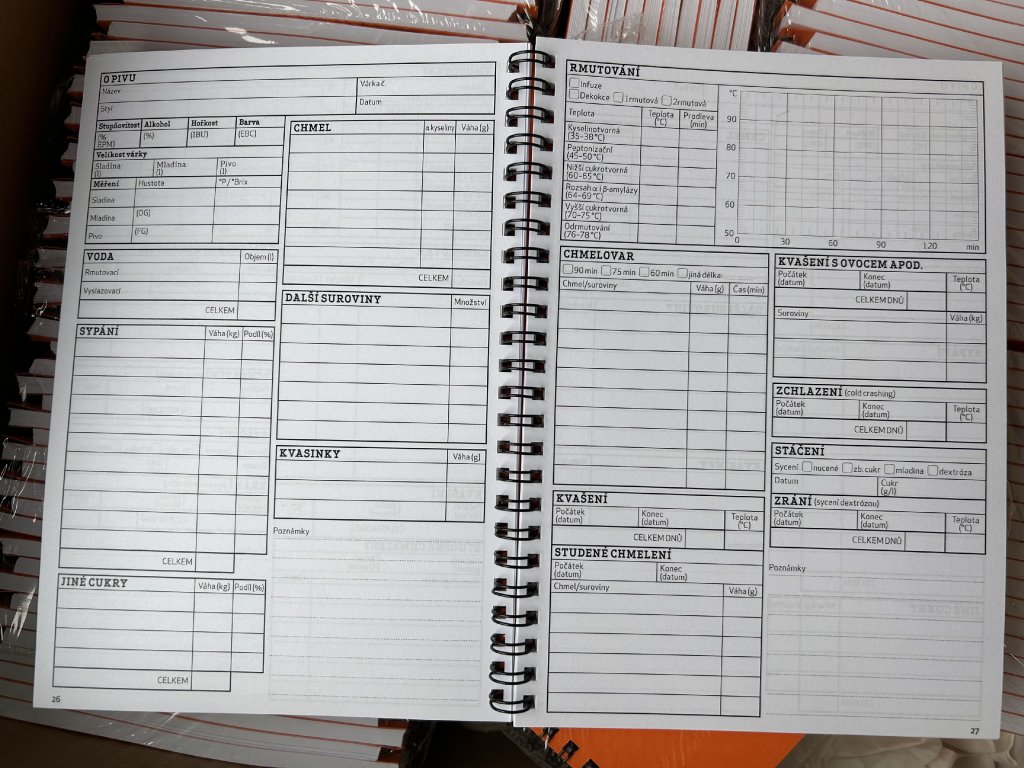 O PIVU
Název
Várka č.
Styl
Datum
Stupňovitost Alkohol Hořkost Barva
(% EPM) (%) (IBU) (EBC)
Velikost várky
Sladina (l) Mladina (l) Pivo (l)
Měření Hustota °P/°Brix
Sladina
Mladina (OG)
Pivo (FG)
VODA Objem (l)
Rmutovací
Vyslazovací
CELKEM
SYPÁNÍ Váha (kg) Podíl (%)
CELKEM
JINÉ CUKRY Váha (kg) Podíl (%)
CELKEM
26
CHMEL α kyseliny Váha (g)
CELKEM
DALŠÍ SUROVINY Množství
KVASINKY Váha (g)
Poznámky
RMUTOVÁNÍ
Infuze
Dekokce 1rmutová 2rmutová
Teplota Teplota (°C) Prodleva (min)
Kyselinotvorná
(35–38 °C)
Peptonizační
(45–50 °C)
Nižší cukrotvorná
(60–65 °C)
Rozsah α i β-amylázy
(64–69 °C)
Vyšší cukrotvorná
(70–75 °C)
Odrmutování
(76–78 °C)
°C
90
80
70
60
50
0 30 60 90 120 min
CHMELOVAR
90 min 75 min 60 min jiná délka:
Chmel/suroviny Váha (g) Čas (min)
KVAŠENÍ
Počátek (datum) Konec (datum) Teplota (°C)
CELKEM DNŮ
STUDENÉ CHMELENÍ
Počátek (datum) Konec (datum)
Chmel/suroviny Váha (g)
KVAŠENÍ S OVOCEM APOD.
Počátek (datum) Konec (datum) Teplota (°C)
CELKEM DNŮ
Suroviny Váha (kg)
ZCHLAZENÍ (cold crashing)
Počátek (datum) Konec (datum) Teplota (°C)
CELKEM DNŮ
STÁČENÍ
Sycení nucené zb. cukr mladina dextróza
Datum Cukr (g/l)
ZRÁNÍ (sycení dextrózou)
Počátek (datum) Konec (datum) Teplota (°C)
CELKEM DNŮ
Poznámky
27